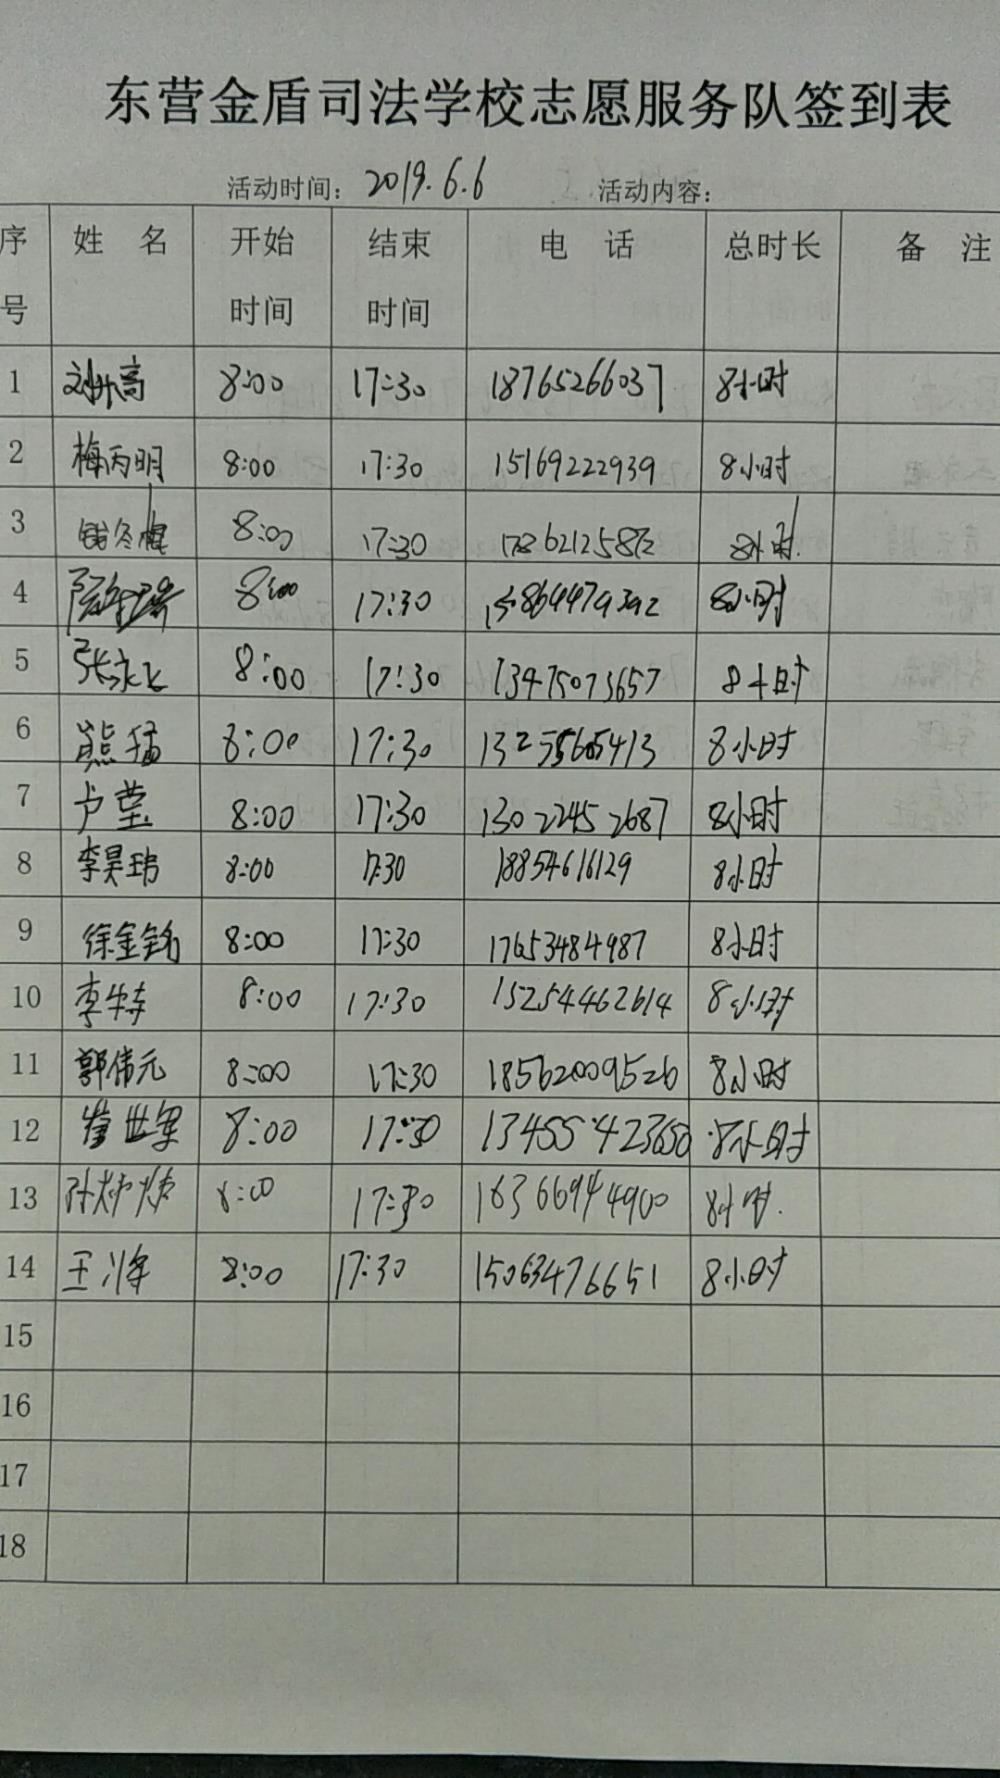 东营金盾司法学校志愿服务队签到表
活动时间：2019.6.6 活动内容：
序号 姓 名 开始时间 结束时间 电 话 总时长 备 注
1 刘升高 8:00 17:30 18765266037 8小时
2 梅丙明 8:00 17:30 15169222939 8小时
3 8:00 17:30 8小时
4 8:00 17:30 8小时
5 张永飞 8:00 17:30 13475073657 8小时
6 熊猛 8:00 17:30 8小时
7 卢莹 8:00 17:30 13022452687 8小时
8 李昊玮 8:00 17:30 18854616129 8小时
9 徐金铭 8:00 17:30 17653484987 8小时
10 8:00 17:30 15254462614 8小时
11 郭伟元 8:00 17:30 18562009526 8小时
12 8:00 17:30 8小时
13 8:00 17:30 8小时
14 8:00 17:30 15063476651 8小时
15
16
17
18